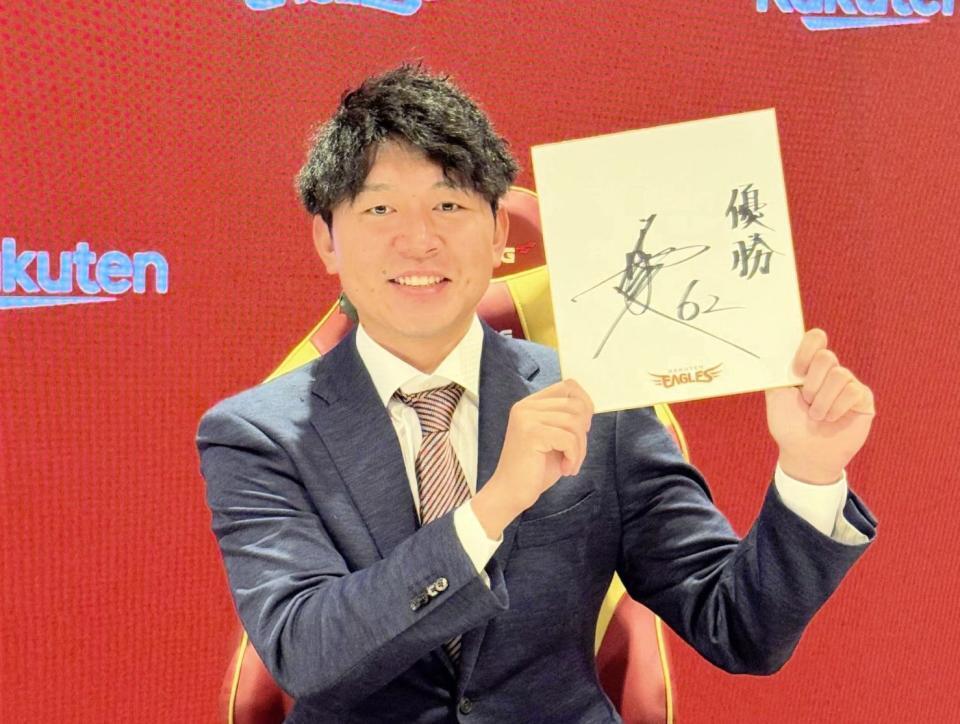 Rakuten
kuten
優勝
62
RAKUTEN
EAGLES
G